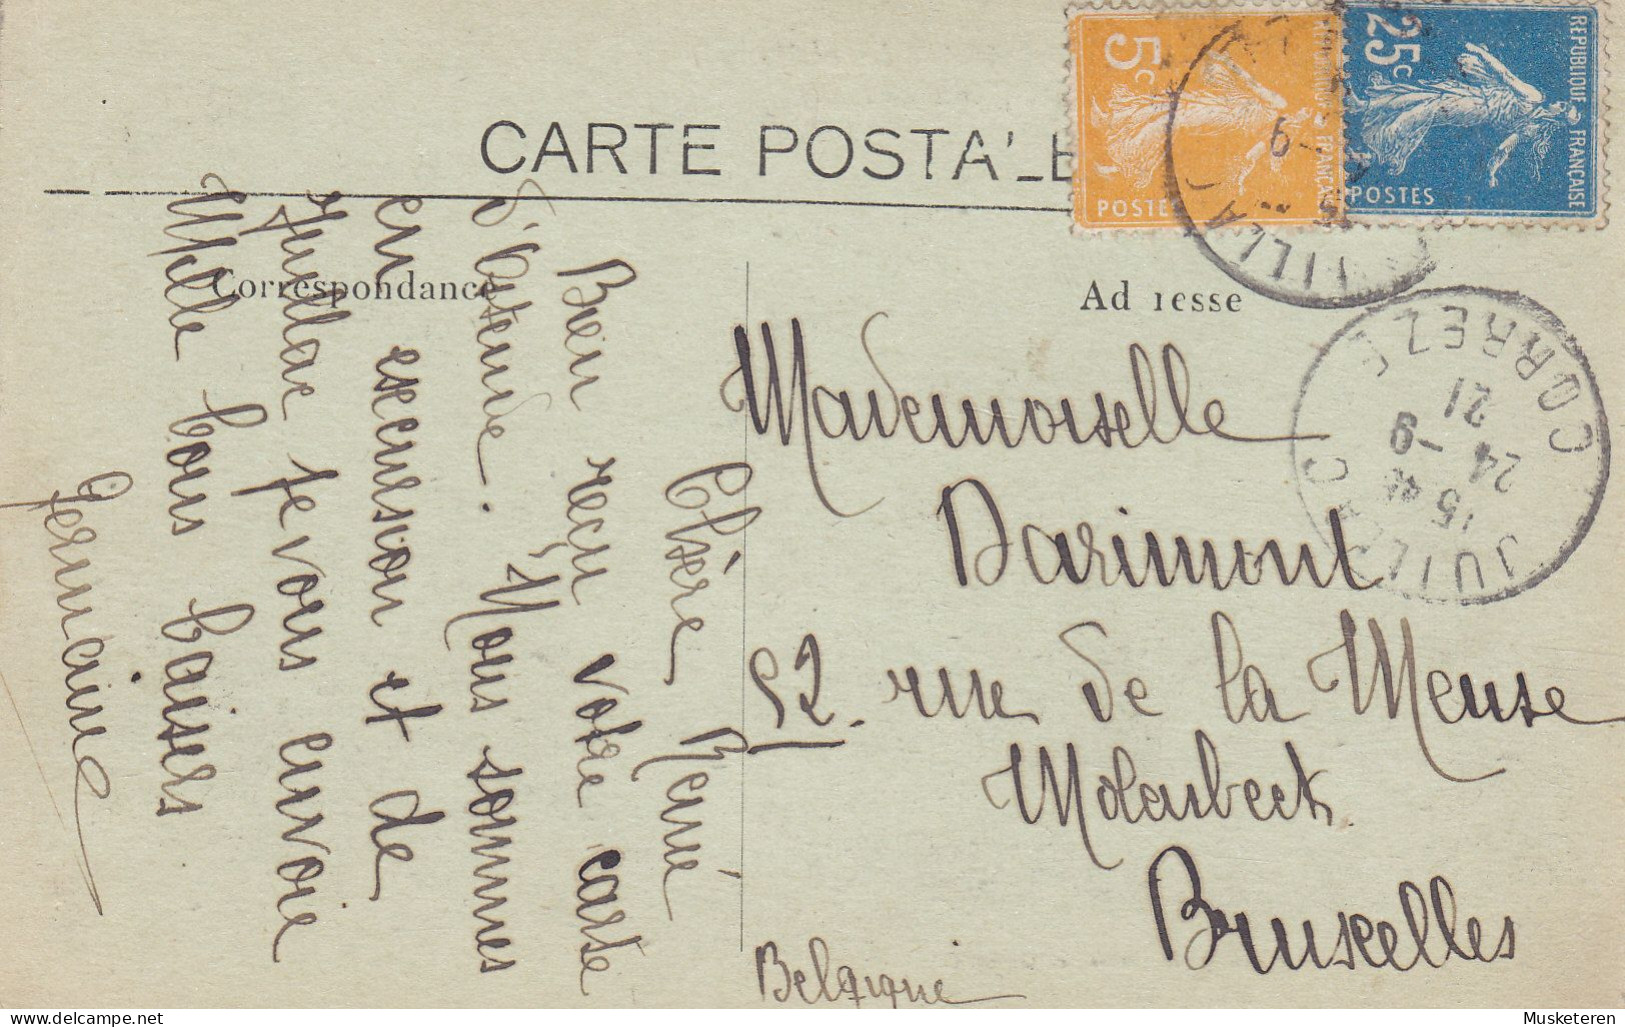 CARTE POSTALE
5c
REPUBLIQUE FRANÇAISE
POSTES
25c
REPUBLIQUE FRANÇAISE
POSTES
Correspondance
Adresse
Chère René
Bien reçu votre carte
d'Ostende. Nous sommes
en escursion et de
Juillac je vous envoie
Mille bons baisers
Germaine
Mademoiselle
Darimont
52 rue de la Meuse
Molanbeek
Bruxelles
Belgique
JUILLAC
CORREZE
15 45
24 -9
21
delcampe.net
Musketeren